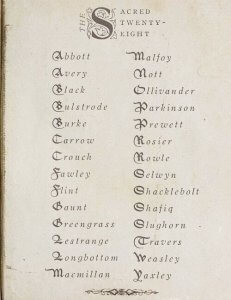 THE SACRED
TWENTY-
EIGHT
Abbott
Avery
Black
Bulstrode
Burke
Carrow
Crouch
Fawley
Flint
Gaunt
Greengrass
Lestrange
Longbottom
Macmillan
Malfoy
Nott
Ollivander
Parkinson
Prewett
Rosier
Rowle
Selwyn
Shacklebolt
Shafiq
Slughorn
Travers
Weasley
Yaxley